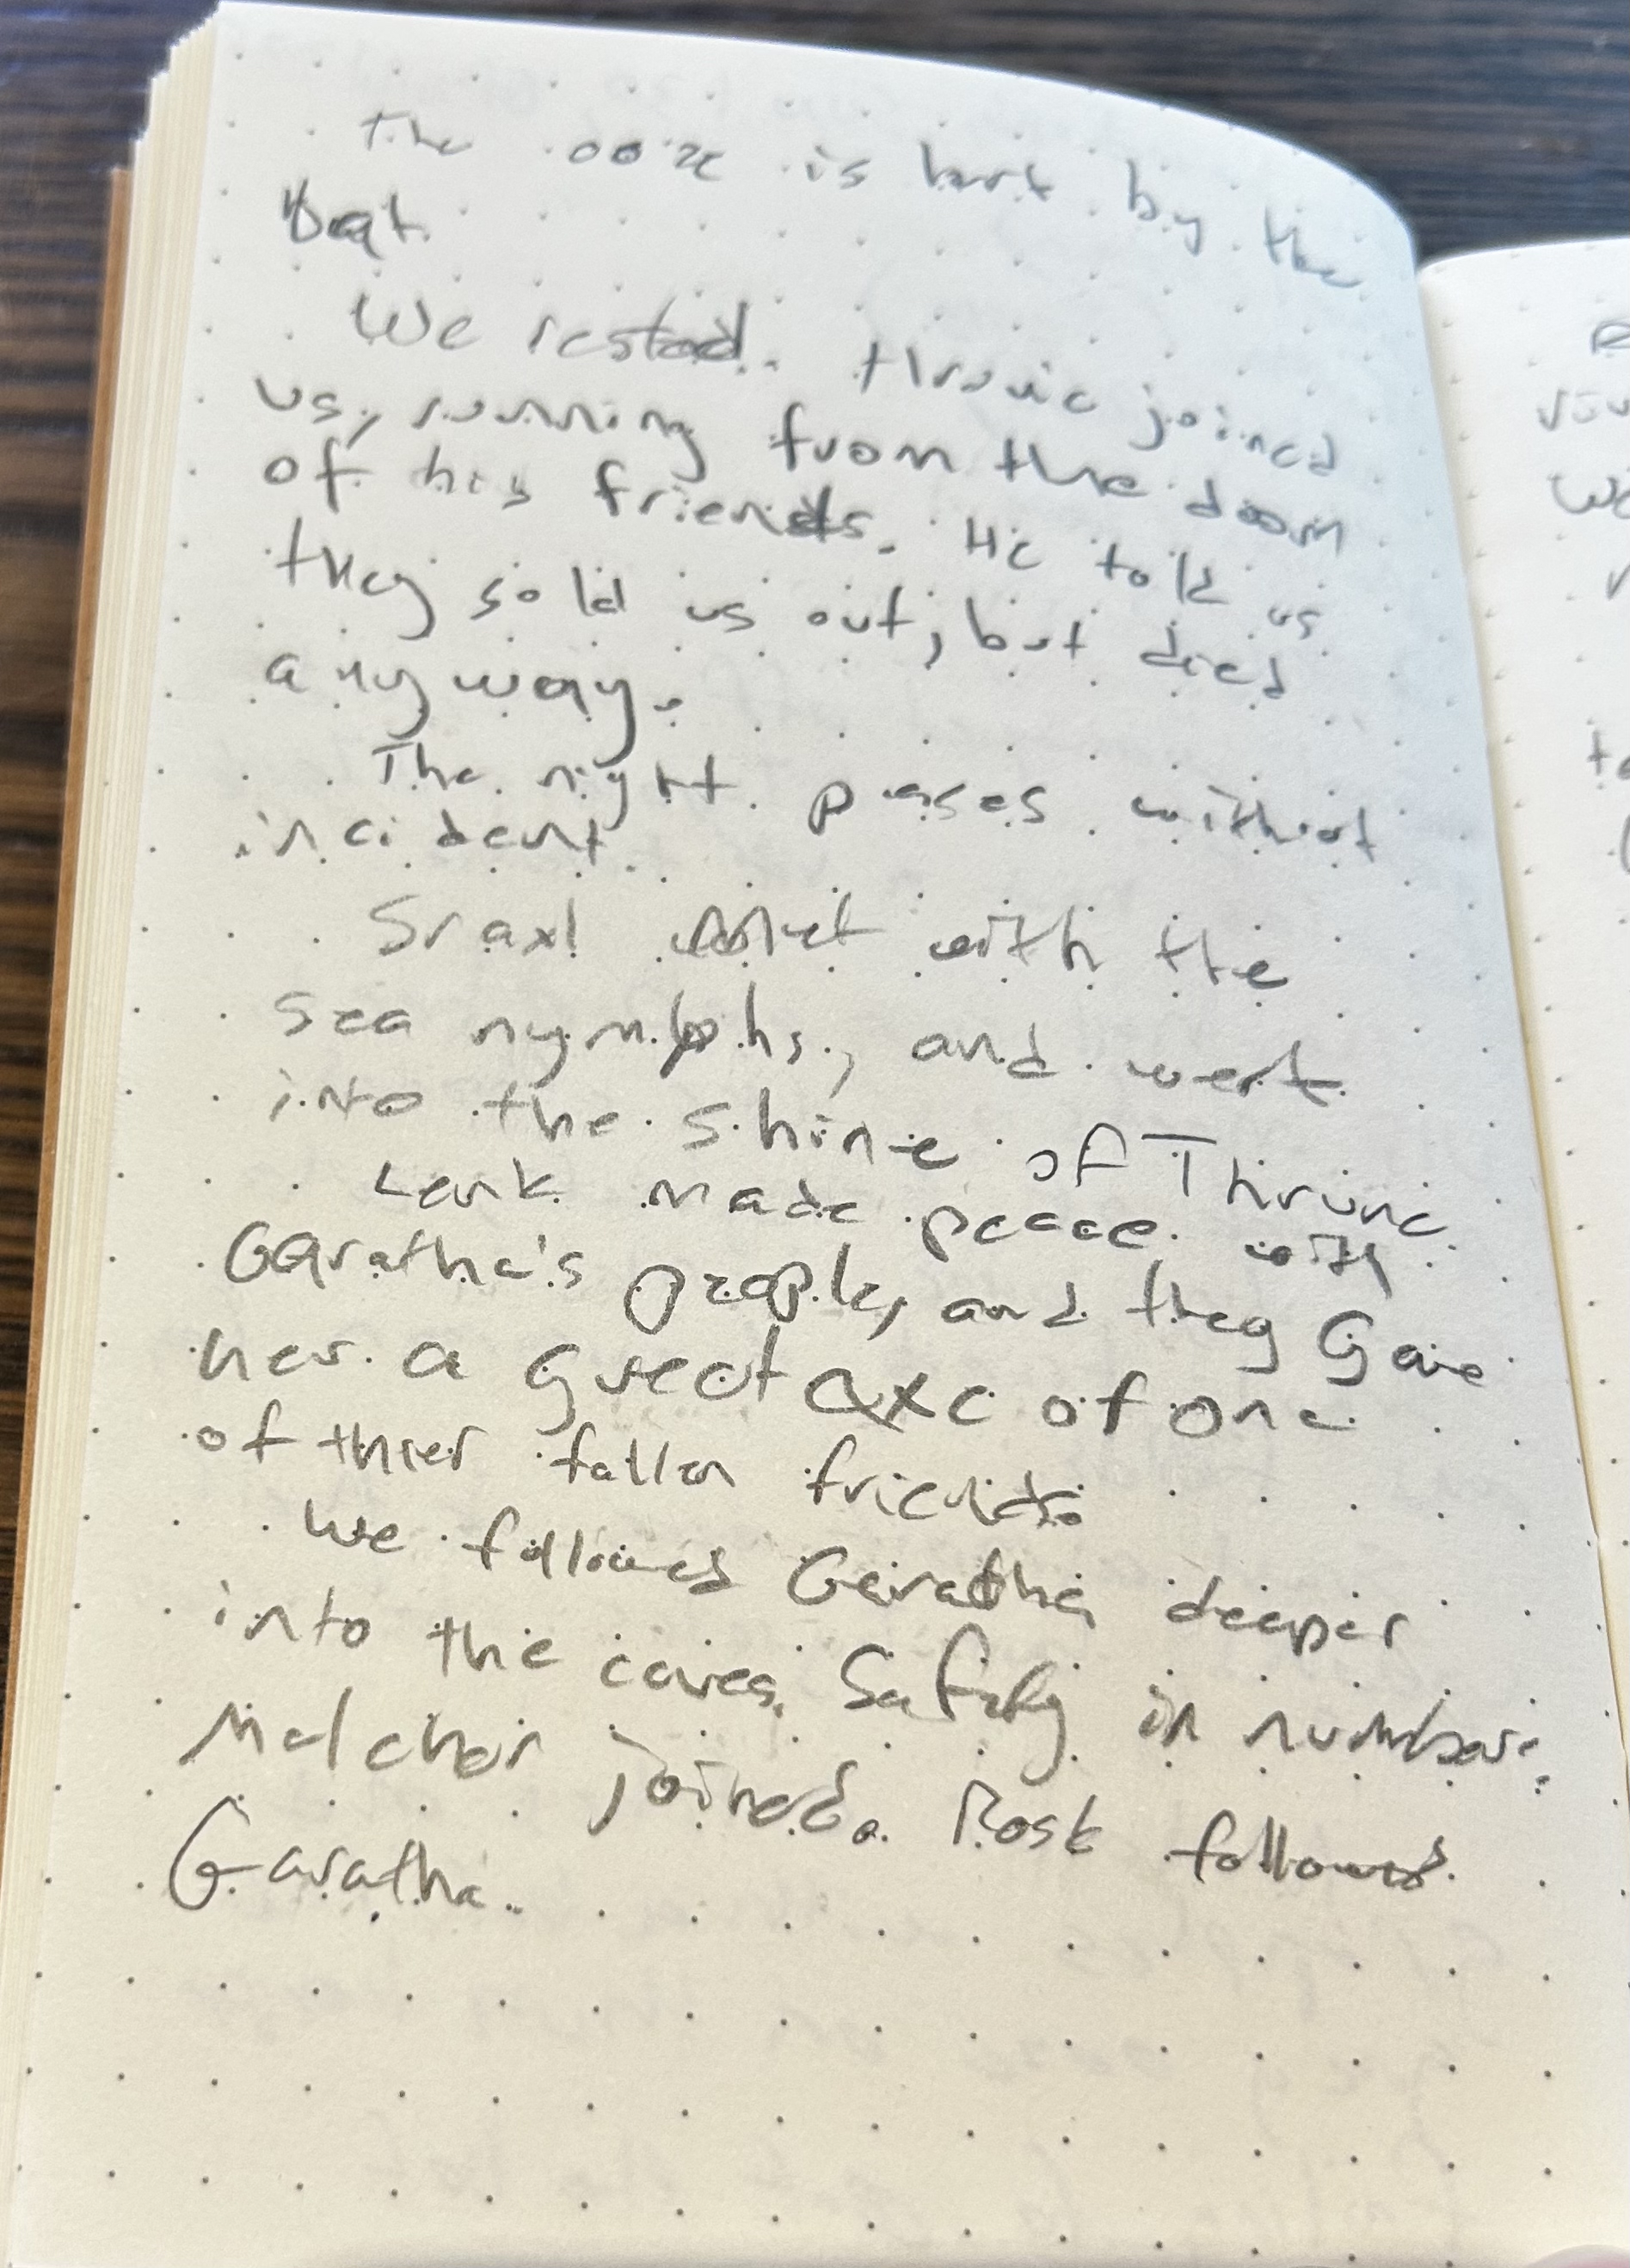 the ooze is hurt by the
boat.
We rested. throuic joined
us, running from the doom
of his friends. He told us
they sold us out, but died
anyway.
The night passes without
incident.
Sraxl met with the
sea nymphs, and went
into the shine of Thrunc
Lark made peace with
Garatha's people, and they Gave
her a great axe of one
of thier fallen friends
We followed Garatha deeper
into the caves. Safety in numbers.
Malchor joined. Rosk followed
Garatha.